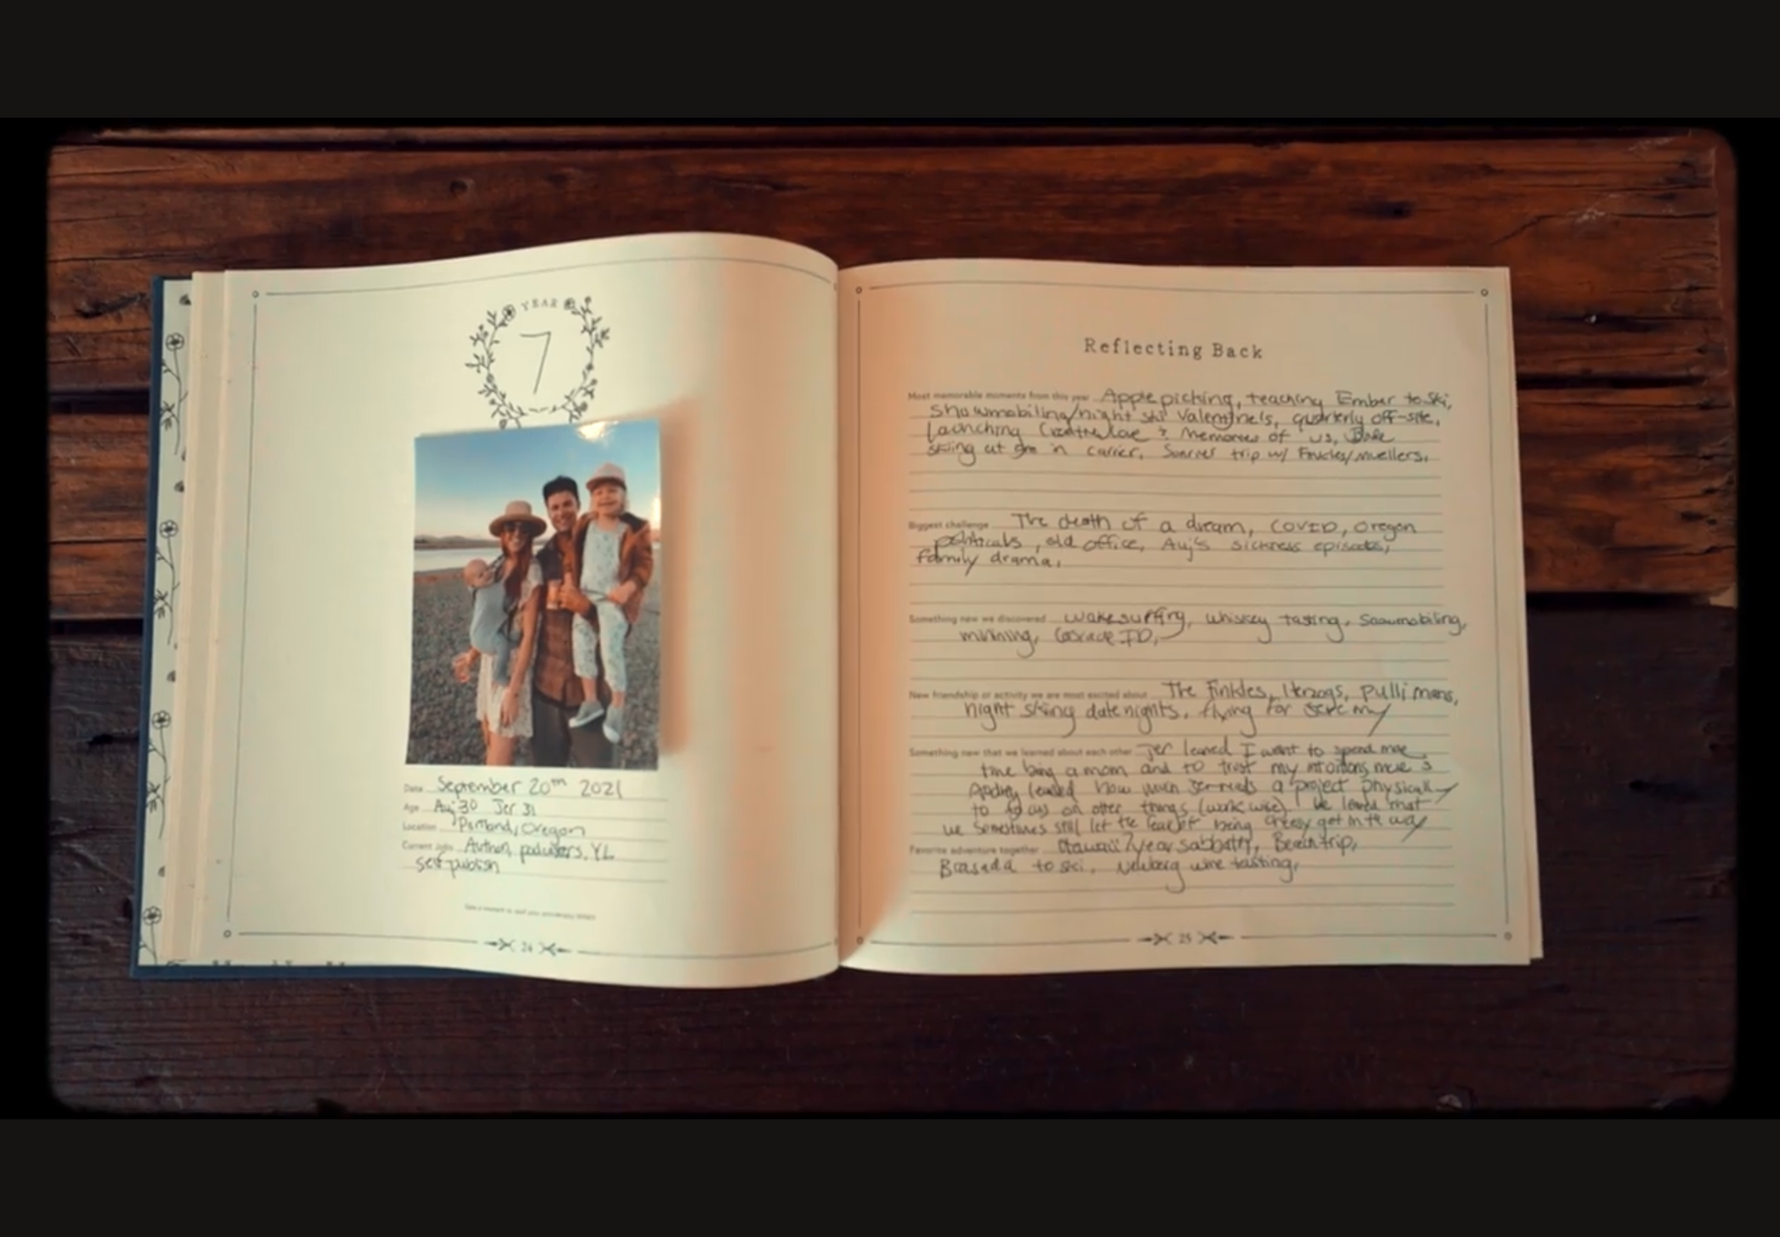 YEAR
7
Date September 20th 2021
Age Auj 30 Jer 31
Location Portland, Oregon
Current Jobs Author, podcasters, YL
self publish
24
Reflecting Back
Most memorable moments from this year Apple picking, teaching Ember to ski,
Snowmobiling/night ski Valentine's, quarterly off-site,
launching & Memories of us,
skiing at in carrier, Sunriver trip w/ Finkles/Muellers.
Biggest challenge The death of a dream, COVID, Oregon
politicals, old office, Auj's sickness episodes,
family drama.
Something new we discovered wakesurfing, whiskey tasting, Snowmobiling,
Cascade ID,
New friendship or activity we are most excited about The Finkles, Herzogs, Pullimans,
night skiing date nights, flying for Jeremy
Something new that we learned about each other Jer learned I want to spend more
time being a mom and to trust my intuitions more &
Audrey learned how much Jer needs a project physically
to focus on other things (work wise). We learned that
we sometimes still let the being get in the way
Favorite adventure together Hawaii 7 year sabbaty, Beach trip,
Brasada to ski, Newberg wine tasting,
25